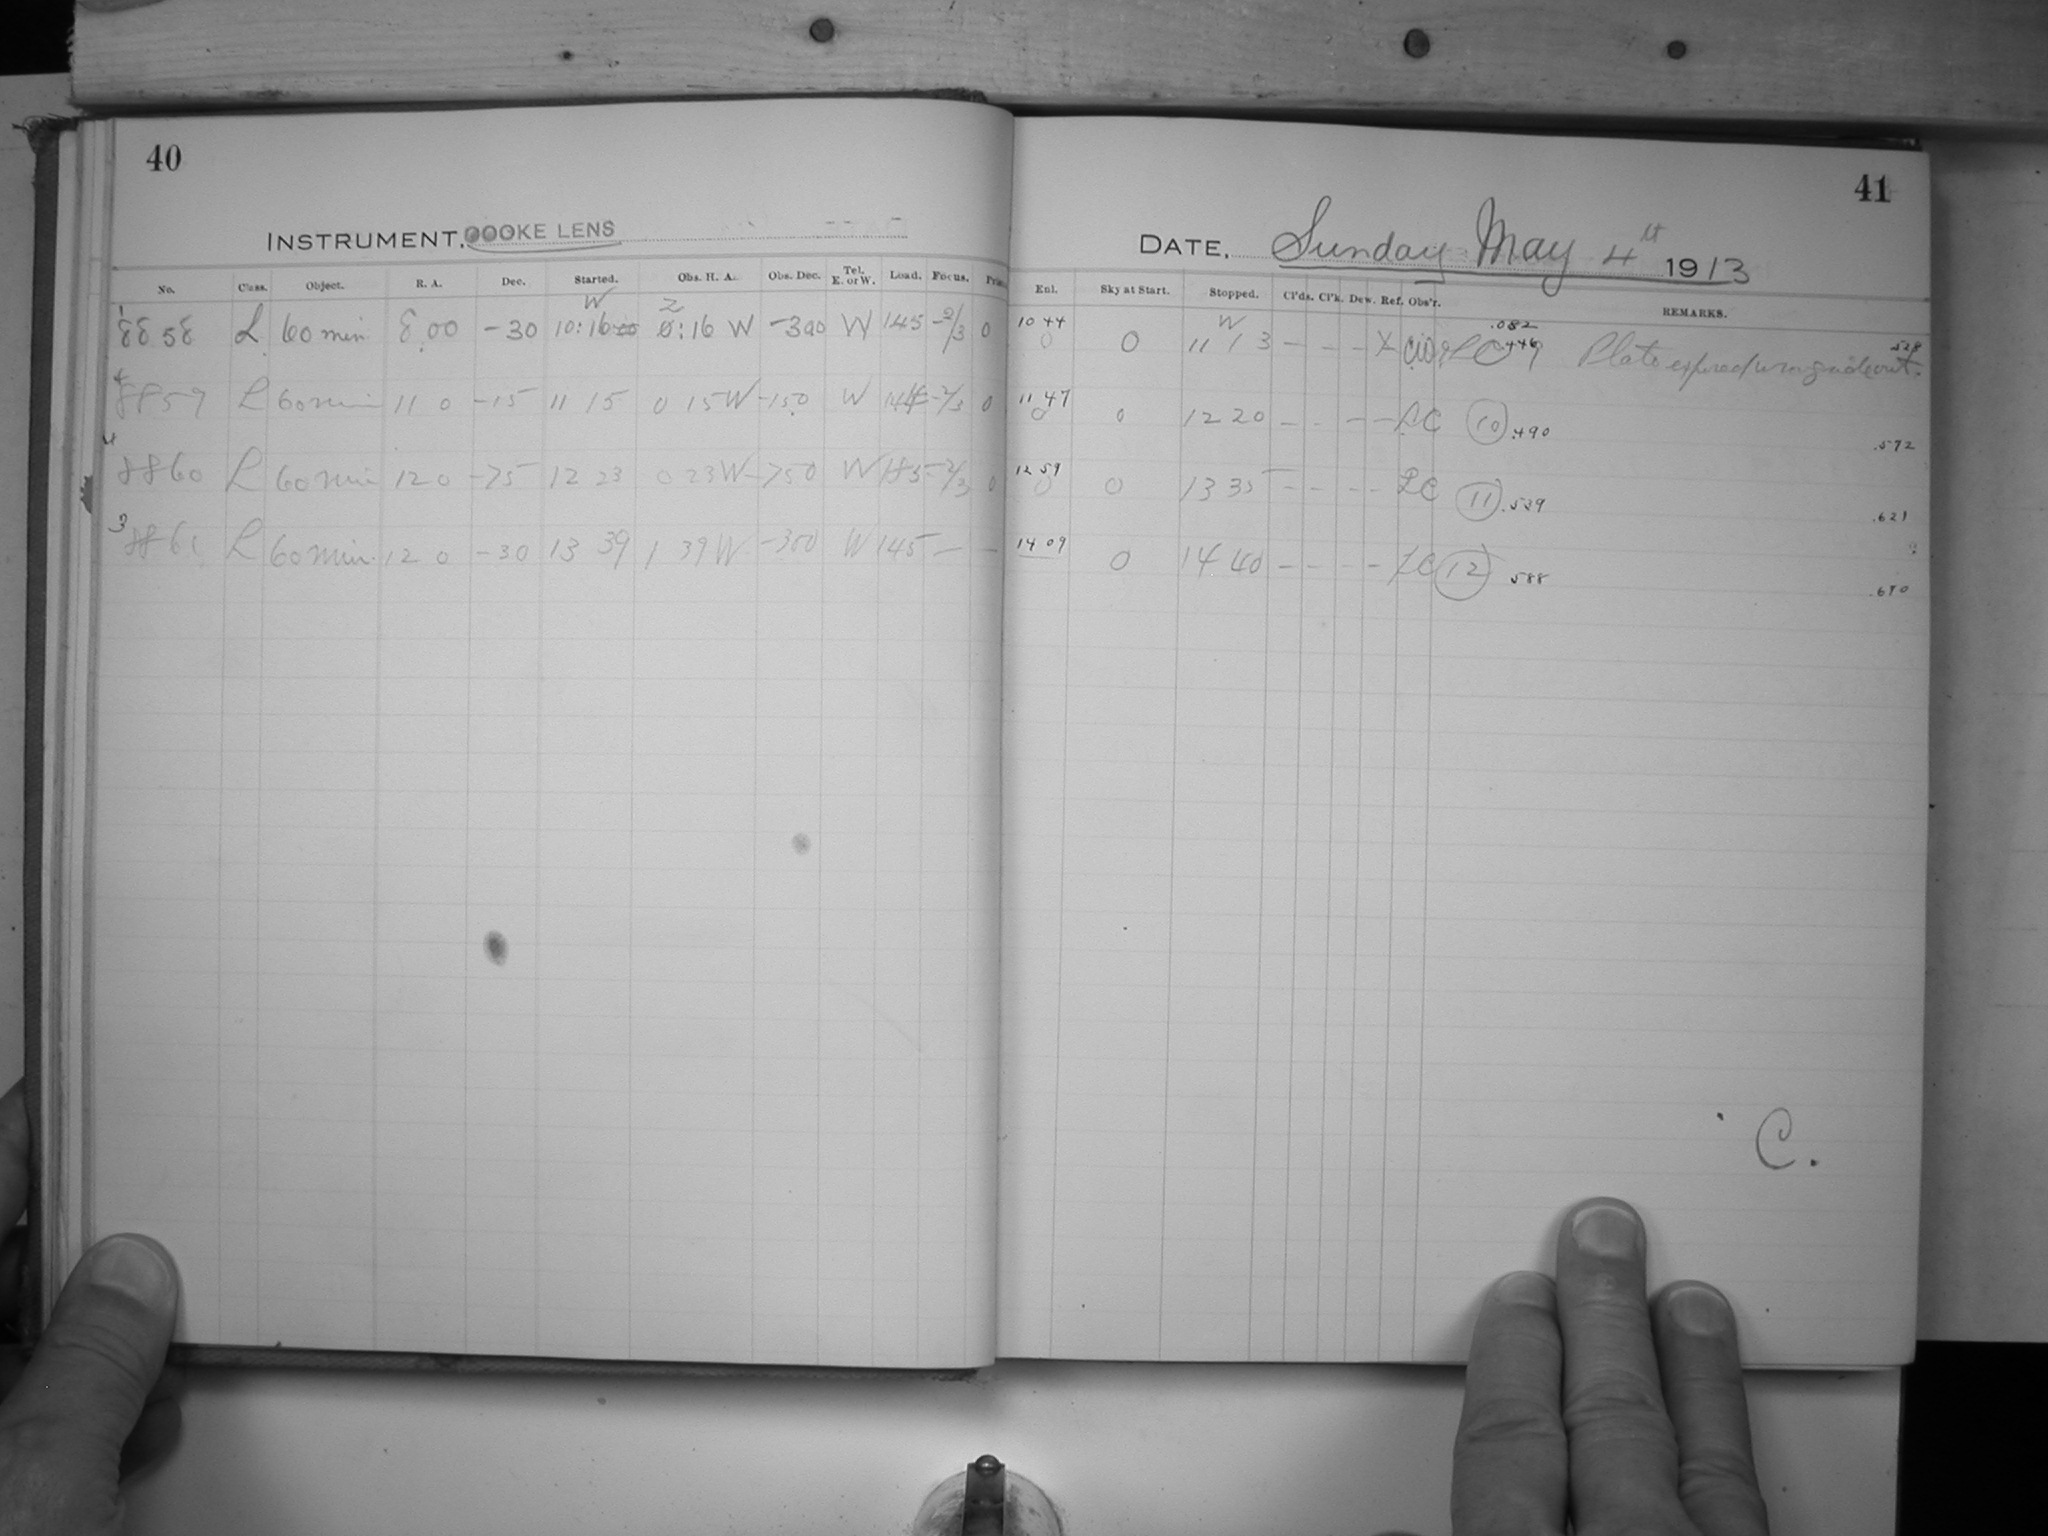 40
INSTRUMENT, COOKE LENS
No. Class. Object. R. A. Dec. Started. Obs. H. A. Obs. Dec. Tel. E. or W. Load. Focus.
W
1
8858 L 60 min. 8 00 -30 10:16 0:16 W -300 W 145 -2/3 0
4
8859 L 60 min 11 0 -15 11 15 0 15 W -150 W -2/3 0
4
8860 L 60 min 12 0 -75 12 23 0 23 W -750 W 185 -2/3 0
3
8861 L 60 min. 12 0 -30 13 39 1 39 W -300 W 145 — —
41
DATE, Sunday May 4th 1913
Enl. Sky at Start. Stopped. Cl'ds. Cl'k. Dew. Ref. Obs'r. REMARKS.
10 44 W .082
0 0 11 13 — — — LC 9 Plate exposed wrong side out. .528
11 47
0 0 12 20 — — — — LC 10 .490
.572
12 59
0 0 13 35 — — — — LC 11 .539
.621
14 09
0 14 40 — — — — LC 12 .588
.670
C.